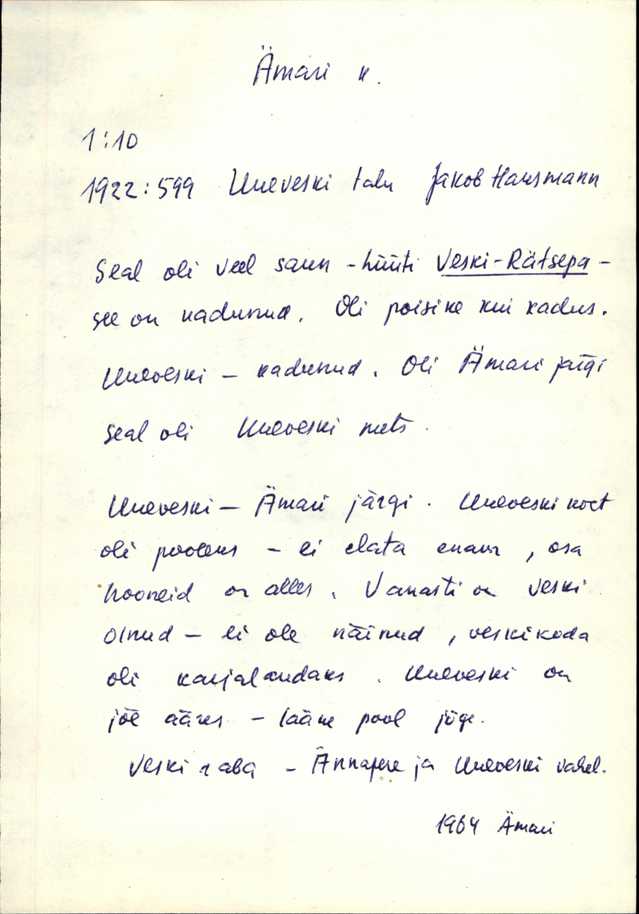 Ämari k.
1:10
1922:599 Uueveski talu Jakob Hansmann
Seal oli veel saun - hüüti Veski-Rätsepa -
see on kadunud. Oli poisike kui kadus.
Uueveski - kadunud. Oli Ämari järgi
Seal oli Uueveski mets.
Uueveski - Ämari järgi. Uueveski koht
oli pooleks - ei elata enam, osa
hooneid on alles. Vanasti on veski
olnud - ei ole näinud, veskikoda
oli karjalaudaks. Uueveski on
jõe ääres - lääne pool jõge.
Veski raba - Ännapere ja Uueveski vahel.
1964 Ämari